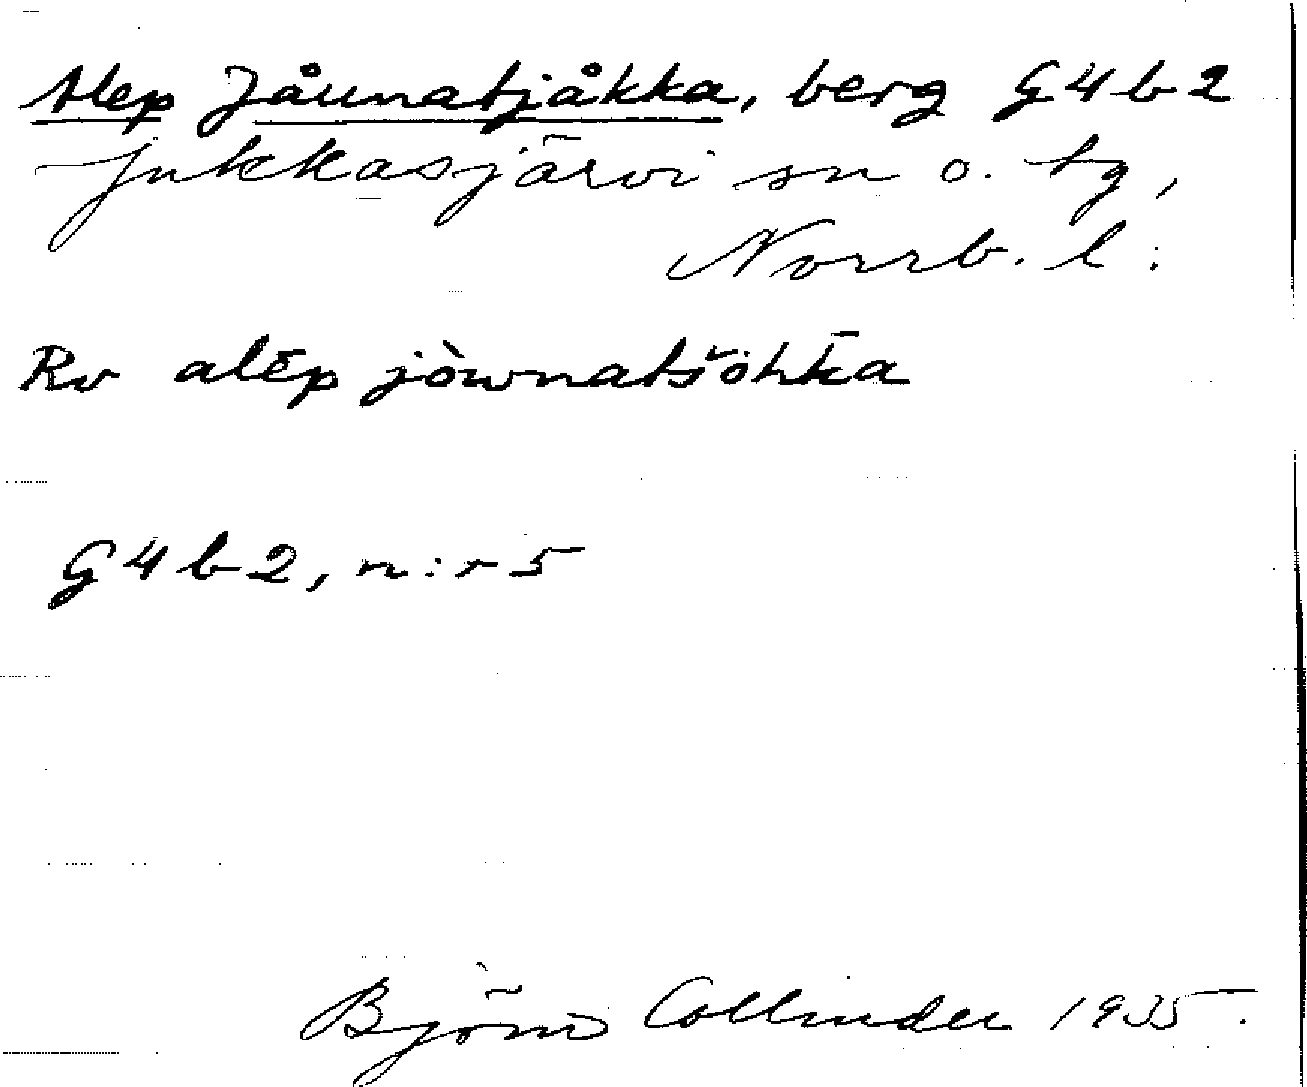 Alep Jåunatjåkka, berg G4b2
Jukkasjärvi sn o. tg,
Norrb. l.
Rv alēp jòwnatšòhk̄a
G4b2, n:r 5
Björn Collinder 1935.